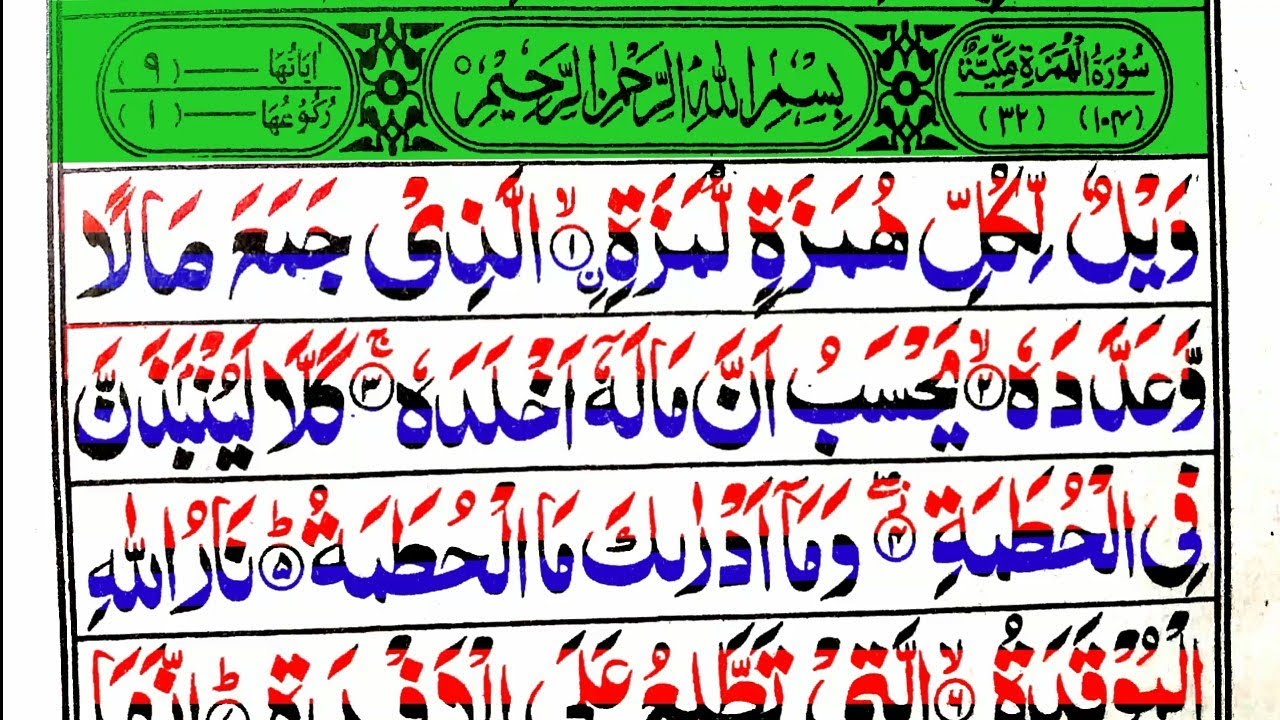 سُوْرَةُ الْهُمَزَةِ مَكِّيَّةٌ
(١٠٤) (٣٢)
بِسْمِ اللّٰهِ الرَّحْمٰنِ الرَّحِيْمِ
اٰيَاتُهَا (٩)
رُكُوْعُهَا (١)
وَيْلٌ لِّكُلِّ هُمَزَةٍ لُّمَزَةِ ۙ‏﴿۱﴾ ۨالَّذِىْ جَمَعَ مَالًا
وَّعَدَّدَهٗ ۙ‏﴿۲﴾ يَحْسَبُ اَنَّ مَالَهٗۤ اَخْلَدَهٗ‌ ۚ‏﴿۳﴾ كَلَّا‌ لَيُنْۢبَذَنَّ
فِى الْحُطَمَةِ ۖ‏﴿۴﴾ وَمَاۤ اَدْرٰٮكَ مَا الْحُطَمَةُ ؕ‏﴿۵﴾ نَارُ اللّٰهِ
الْمُوْقَدَةُ ۙ‏﴿۶﴾ الَّتِىْ تَطَّلِعُ عَلَى الْاَفْـِٕدَةِ ؕ‏﴿۷﴾ اِنَّهَا